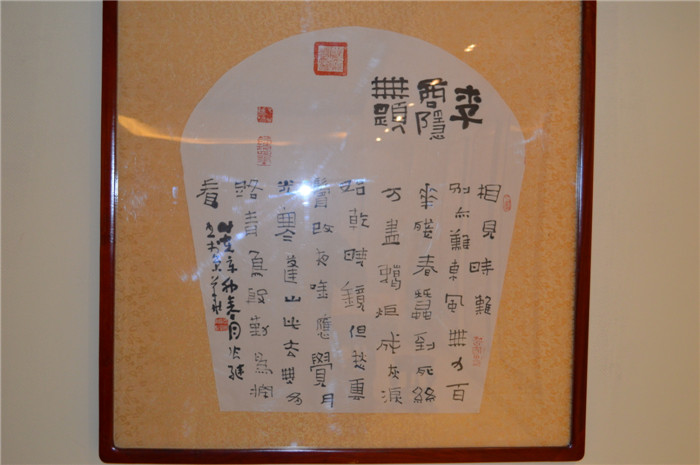 李
商隱
無題
相見時難
別亦難東風無力百
花殘春蠶到死絲
方盡蠟炬成灰淚
始乾曉鏡但愁雲
鬢改夜吟應覺月
光寒蓬山此去無多
路青鳥殷勤為探
看
辛卯春月